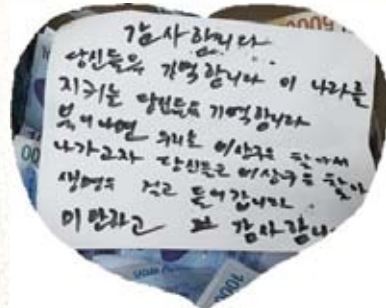 감사합니다
당신들을 기억합니다 이 나라를
지키는 당신들을 기억합니다
불이나면 우리는 비상구를 찾아서
나가고자 당신들은 비상구를 찾아
생명을 걸고 들어갑니다
미안하고 또 감사합니